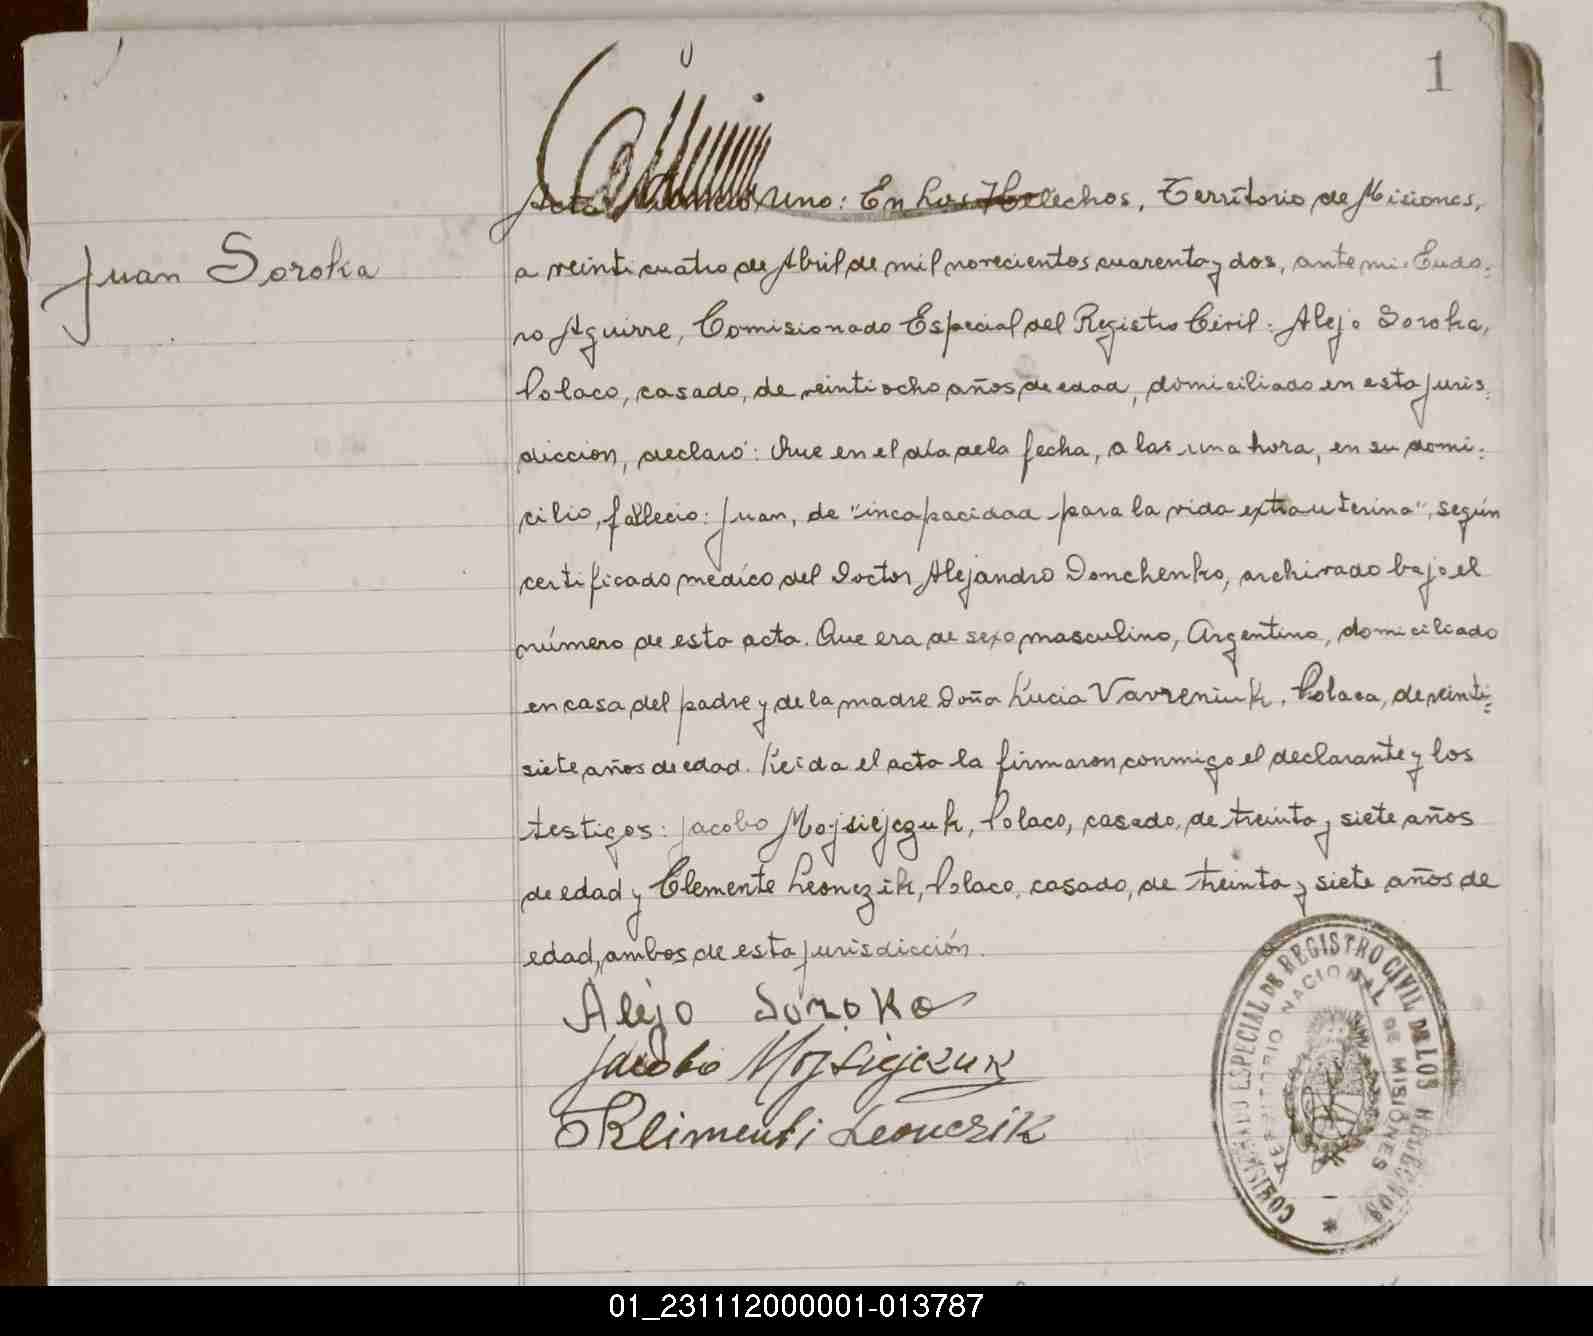 1
Juan Soroka
Acta número uno: En Los Helechos, Territorio de Misiones,
a veinticuatro de Abril de mil novecientos cuarenta y dos, ante mi Eudo-
ro Aguirre, Comisionado Especial del Registro Civil: Alejo Soroka,
Polaco, casado, de veintiocho años de edad, domiciliado en esta juris-
diccion, declaró: Que en el día de la fecha, a las una hora, en su domi-
cilio, fallecio: Juan, de "incapacidad para la vida extrauterina", según
certificado medico del Doctor Alejandro Donchenko, archivado bajo el
número de esta acta. Que era de sexo masculino, Argentino, domiciliado
en casa del padre y de la madre Doña Lucia Vavreniuk, Polaca, de veinti-
siete años de edad. Leida el acta la firmaron conmigo el declarante y los
testigos: Jacobo Mojsiejczuk, Polaco, casado, de treinta y siete años
de edad y Clemente Leonczik, Polaco, casado, de treinta y siete años de
edad, ambos de esta jurisdicción.
Alejo Soroko
Jacobo Mojsiejczuk
Klimenti Leonczik
COMISIONADO ESPECIAL DE REGISTRO CIVIL DE LOS HELECHOS
TERRITORIO NACIONAL DE MISIONES
01_231112000001-013787